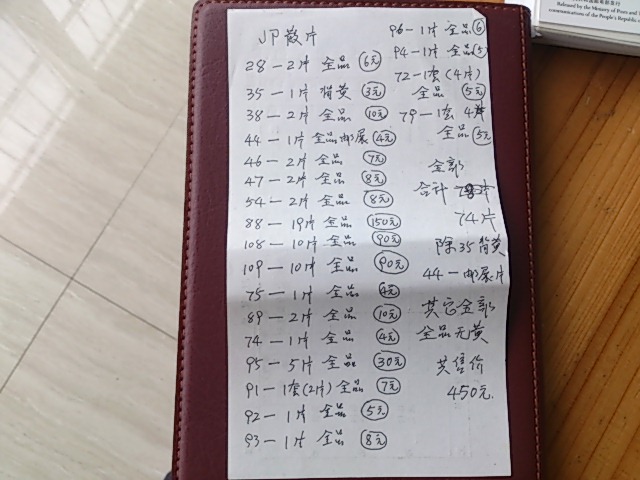 JP散片
28-2片 全品 6元
35-1片 背黄 3元
38-2片 全品 10元
44-1片 全品邮展 4元
46-2片 全品 7元
47-2片 全品 8元
54-2片 全品 8元
88-19片 全品 150元
108-10片 全品 90元
109-10片 全品 90元
75-1片 全品 4元
89-2片 全品 10元
74-1片 全品 4元
95-5片 全品 30元
91-1套(2片)全品 7元
92-1片 全品 5元
93-1片 全品 8元
96-1片 全品 6
94-1片 全品 5
72-1套(4片)
全品 5元
79-1套 4片
全品 5元
全部
合计
74片
除35背黄
44-邮展片
其它全部
全品无黄
共售价
450元.
Released by the Ministry of Posts and
communications of the People's Republic